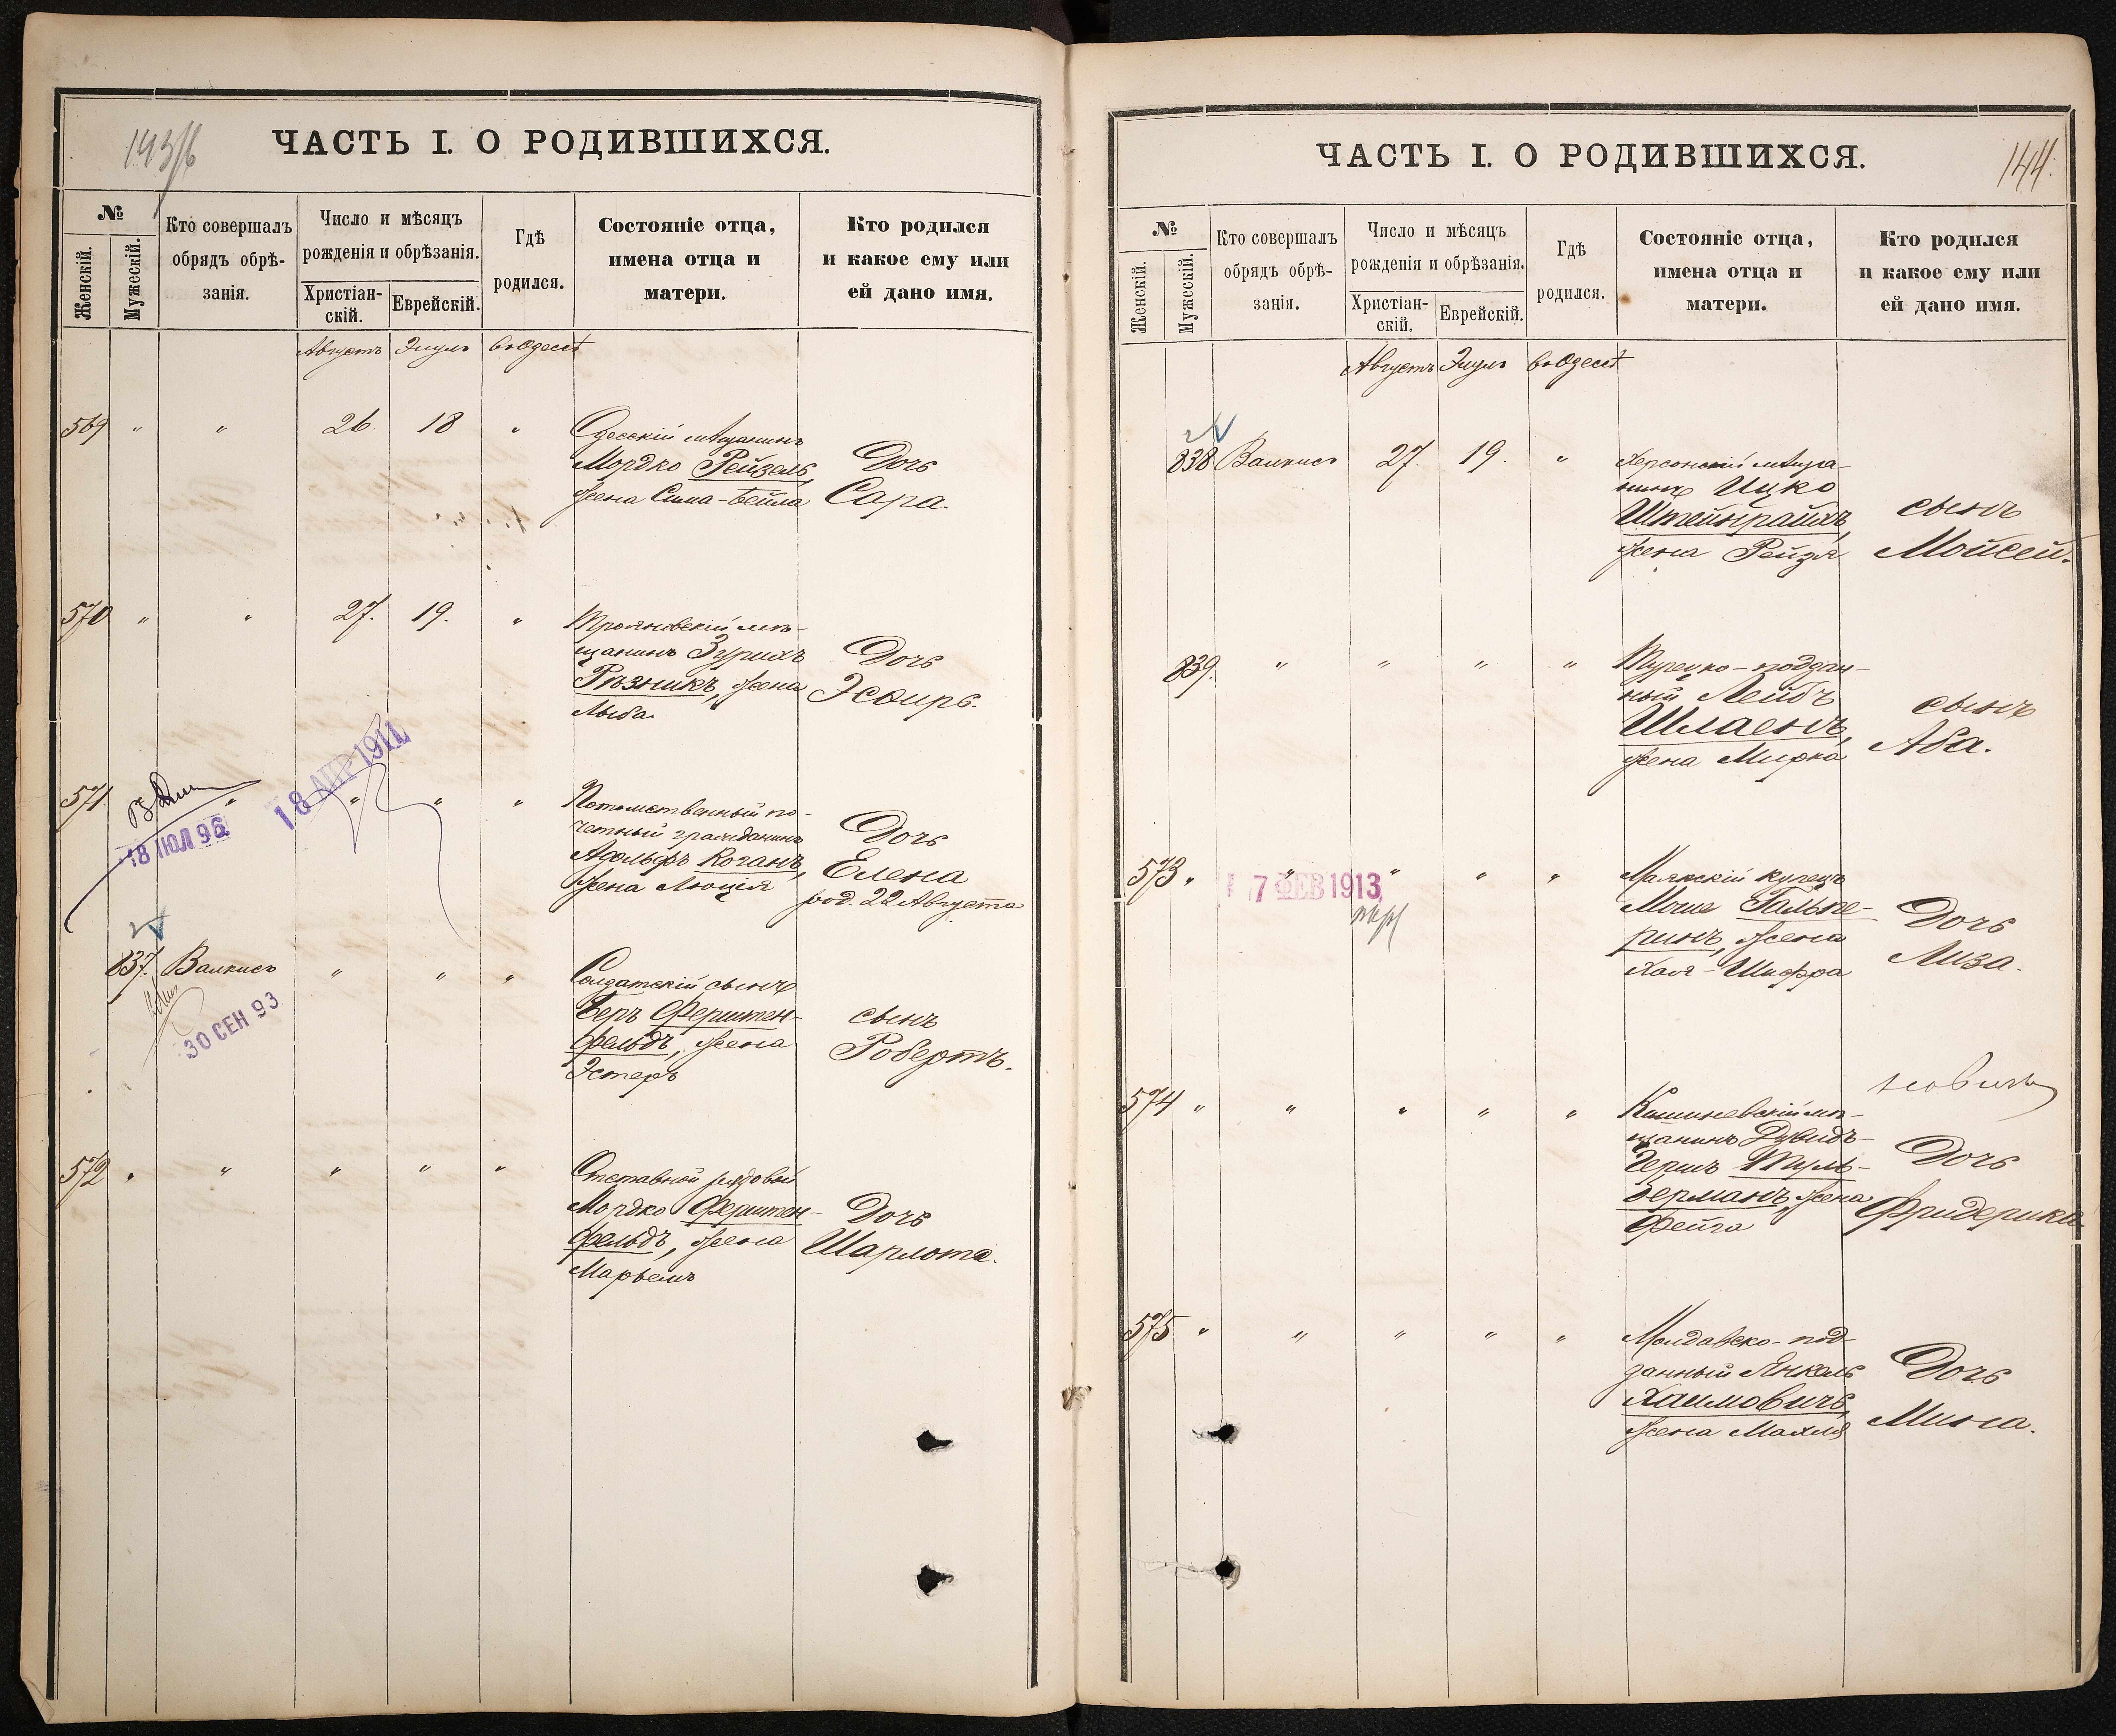 143/б
ЧАСТЬ I. О РОДИВШИХСЯ.
№
Женскій.
Мужескій.
Кто совершалъ
обрядъ обрѣ-
занія.
Число и мѣсяцъ
рожденія и обрѣзанія.
Христіан-
скій.
Еврейскій.
Гдѣ
родился.
Состояніе отца,
имена отца и
матери.
Кто родился
и какое ему или
ей дано имя.
Августъ Элулъ въ Одессѣ
569 " " 26. 18 "
Одесскій мѣщанинъ
Мордко Рейзель,
жена Сима-Бейла
Дочь
Сара.
570 " " 27. 19. "
Трояновскій мѣ-
щанинъ Зурихъ
Рѣзникъ, жена
Дочь
Эсѳирь.
571 " " " "
18 ІЮЛ 96
18 АПР 1911
Потомственный по-
четный гражданинъ
Адольфъ Коганъ,
жена Люція
Дочь
Елена
род. 22 Августа
837. Валкисъ " " "
30 СЕН 93
Солдатскій сынъ
Беръ Ферштен-
фельдъ, жена
Эстеръ
сынъ
Робертъ.
572 " " " " "
Отставной рядовой
Мордко Ферштен-
фельдъ, жена
Марьемъ
Дочь
Шарлота.
144.
ЧАСТЬ I. О РОДИВШИХСЯ.
№
Женскій.
Мужескій.
Кто совершалъ
обрядъ обрѣ-
занія.
Число и мѣсяцъ
рожденія и обрѣзанія.
Христіан-
скій.
Еврейскій.
Гдѣ
родился.
Состояніе отца,
имена отца и
матери.
Кто родился
и какое ему или
ей дано имя.
Августъ Элулъ въ Одессѣ
838 Валкисъ 27. 19. "
Херсонскій мѣща-
нинъ Ицко
Штейнрайхъ,
жена Рейзя
сынъ
Мойсей.
839. " " " "
Турецко-поддан-
ный Лейбъ
Шлаенъ,
жена Мирка
сынъ
Аба.
573 " " " " "
7 ФЕВ 1913
Маякскій купецъ
Моше Гальпе-
ринъ, жена
Хая-Шифра
Дочь
Лиза.
574 " " " " "
Кишиневскій мѣ-
щанинъ Дувидъ-
Гершъ Туль-
Берманъ, жена
Фейга
Дочь
Фридерика
575 " " " " "
Молдавско-под-
данный Янкель
Хаимовичъ,
жена Махля
Дочь
Мина.